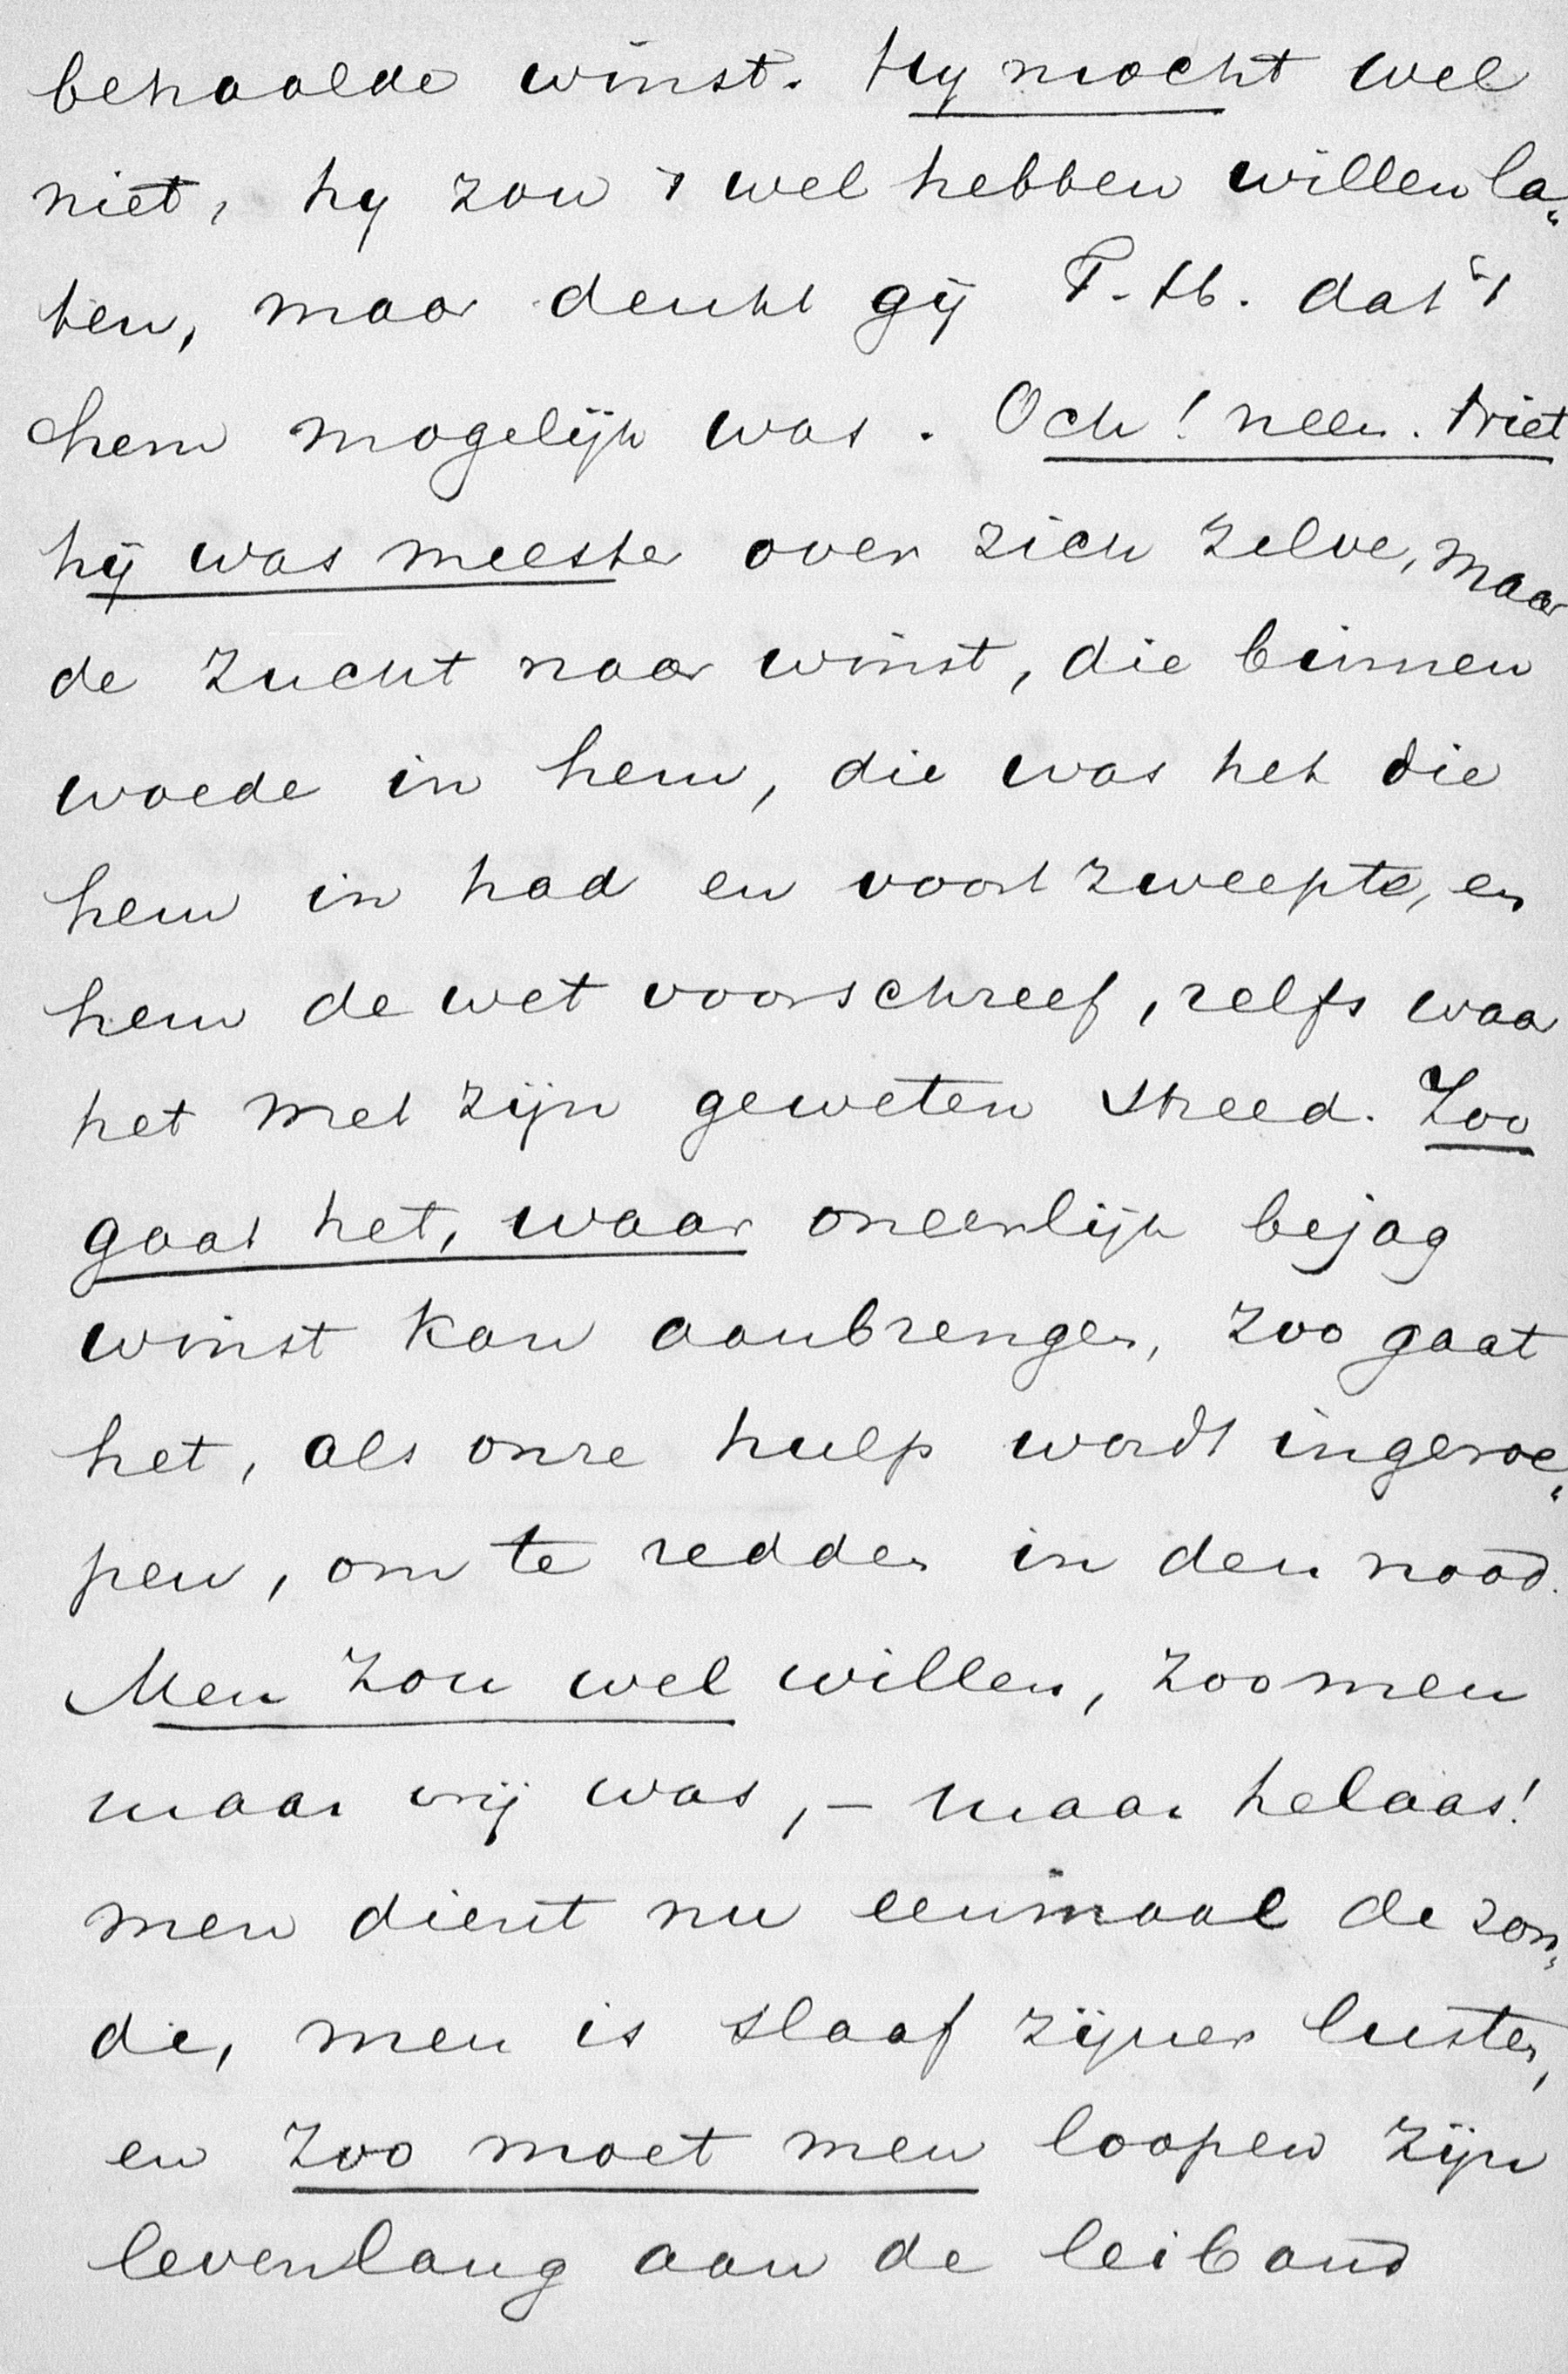 behaalde winst. Hy mocht wel
niet, hy zou 't wel hebben willen la„
ten, maar denkt gij T. H. dat 't
hem mogelijk was. Och! neen. Niet
hij was meester over zich zelve, maar
de zucht naar winst, die binnen
woede in hem, die was het die
hem in had en voort zweepte, en
hem de wet voorschreef, zelfs waar
het met zijn geweten streed. Zoo
gaat het, waar oneerlijk bejag
winst kan aanbrengen, zoo gaat
het, als onze hulp wordt ingeroe„
pen, om te redden in den nood.
Men zou wel willen, zoo men
maar vrij was, – maar helaas!
men dient nu eenmaal de zon„
de, men is slaaf zijner lusten,
en zoo moet men loopen zijn
levenlang aan de leiband